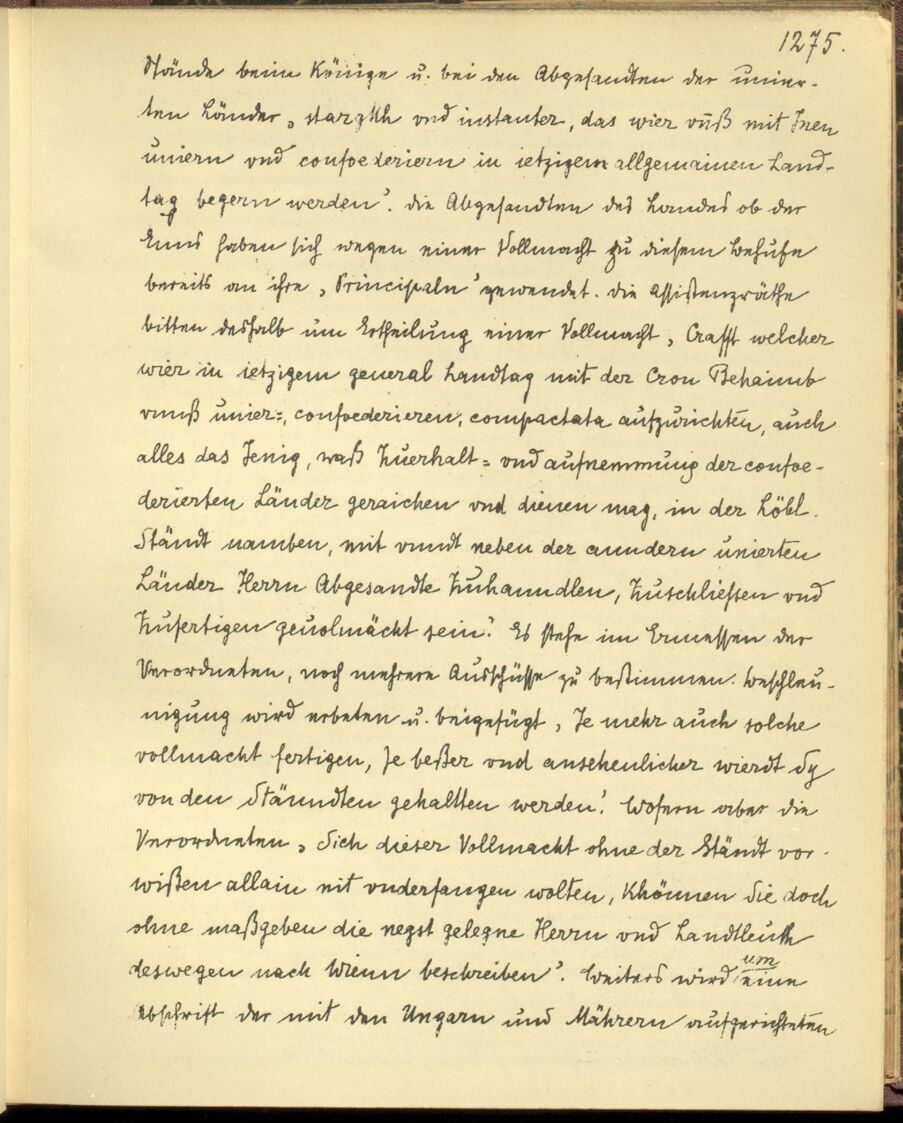 1275.
Stände beim Könige u. bei den Abgesandten der unier-
ten Länder „starckh vnd instanter, das wier vnß mit Inen
uniern vnd confoederiern in ietzigem allgemainen Land-
tag begern werden‘. Die Abgesandten des Landes ob der
Enns haben sich wegen einer Vollmacht zu diesem Behufe
bereits an ihre ‚Principaln‘ gewendet. Die Assistenzräthe
bitten deshalb um Ertheilung einer Vollmacht, ‚Crafft welcher
wier in ietzigem general Landtag mit der Cron Behaimb
vnnß unier=, confoederieren, compactata aufzurichten, auch
alles das Jenig, waß Zuerhalt= vnd aufnemmung der confoe-
derierten Länder geraichen vnd dienen mag, in der Löbl.
Ständt namben, mit vnndt neben der anndern unierten
Länder Herrn Abgesandte Zuhanndlen, Zuschliessen vnd
Zufertigen geuolmächt sein‘. Es stehe im Ermessen der
Verordneten, noch mehrere Ausschüsse zu bestimmen. Beschleu-
nigung wird erbeten u. beigefügt, ‚Je mehr auch solche
vollmacht fertigen, Je beßer vnd ansehenlicher wierdt Sy
von den Stänndten gehaltten werden‘. Wofern aber die
Verordneten ‚Sich dieser Vollmacht ohne der Ständt vor-
wißen allain nit vnderfangen wolten, Khönnen Sie doch
ohne maßgeben die negst gelegne Herrn vnd Landtleuth
deswegen nach Wienn beschreiben‘. Weiters wird um eine
Abschrift der mit den Ungarn und Mährern aufgerichteten